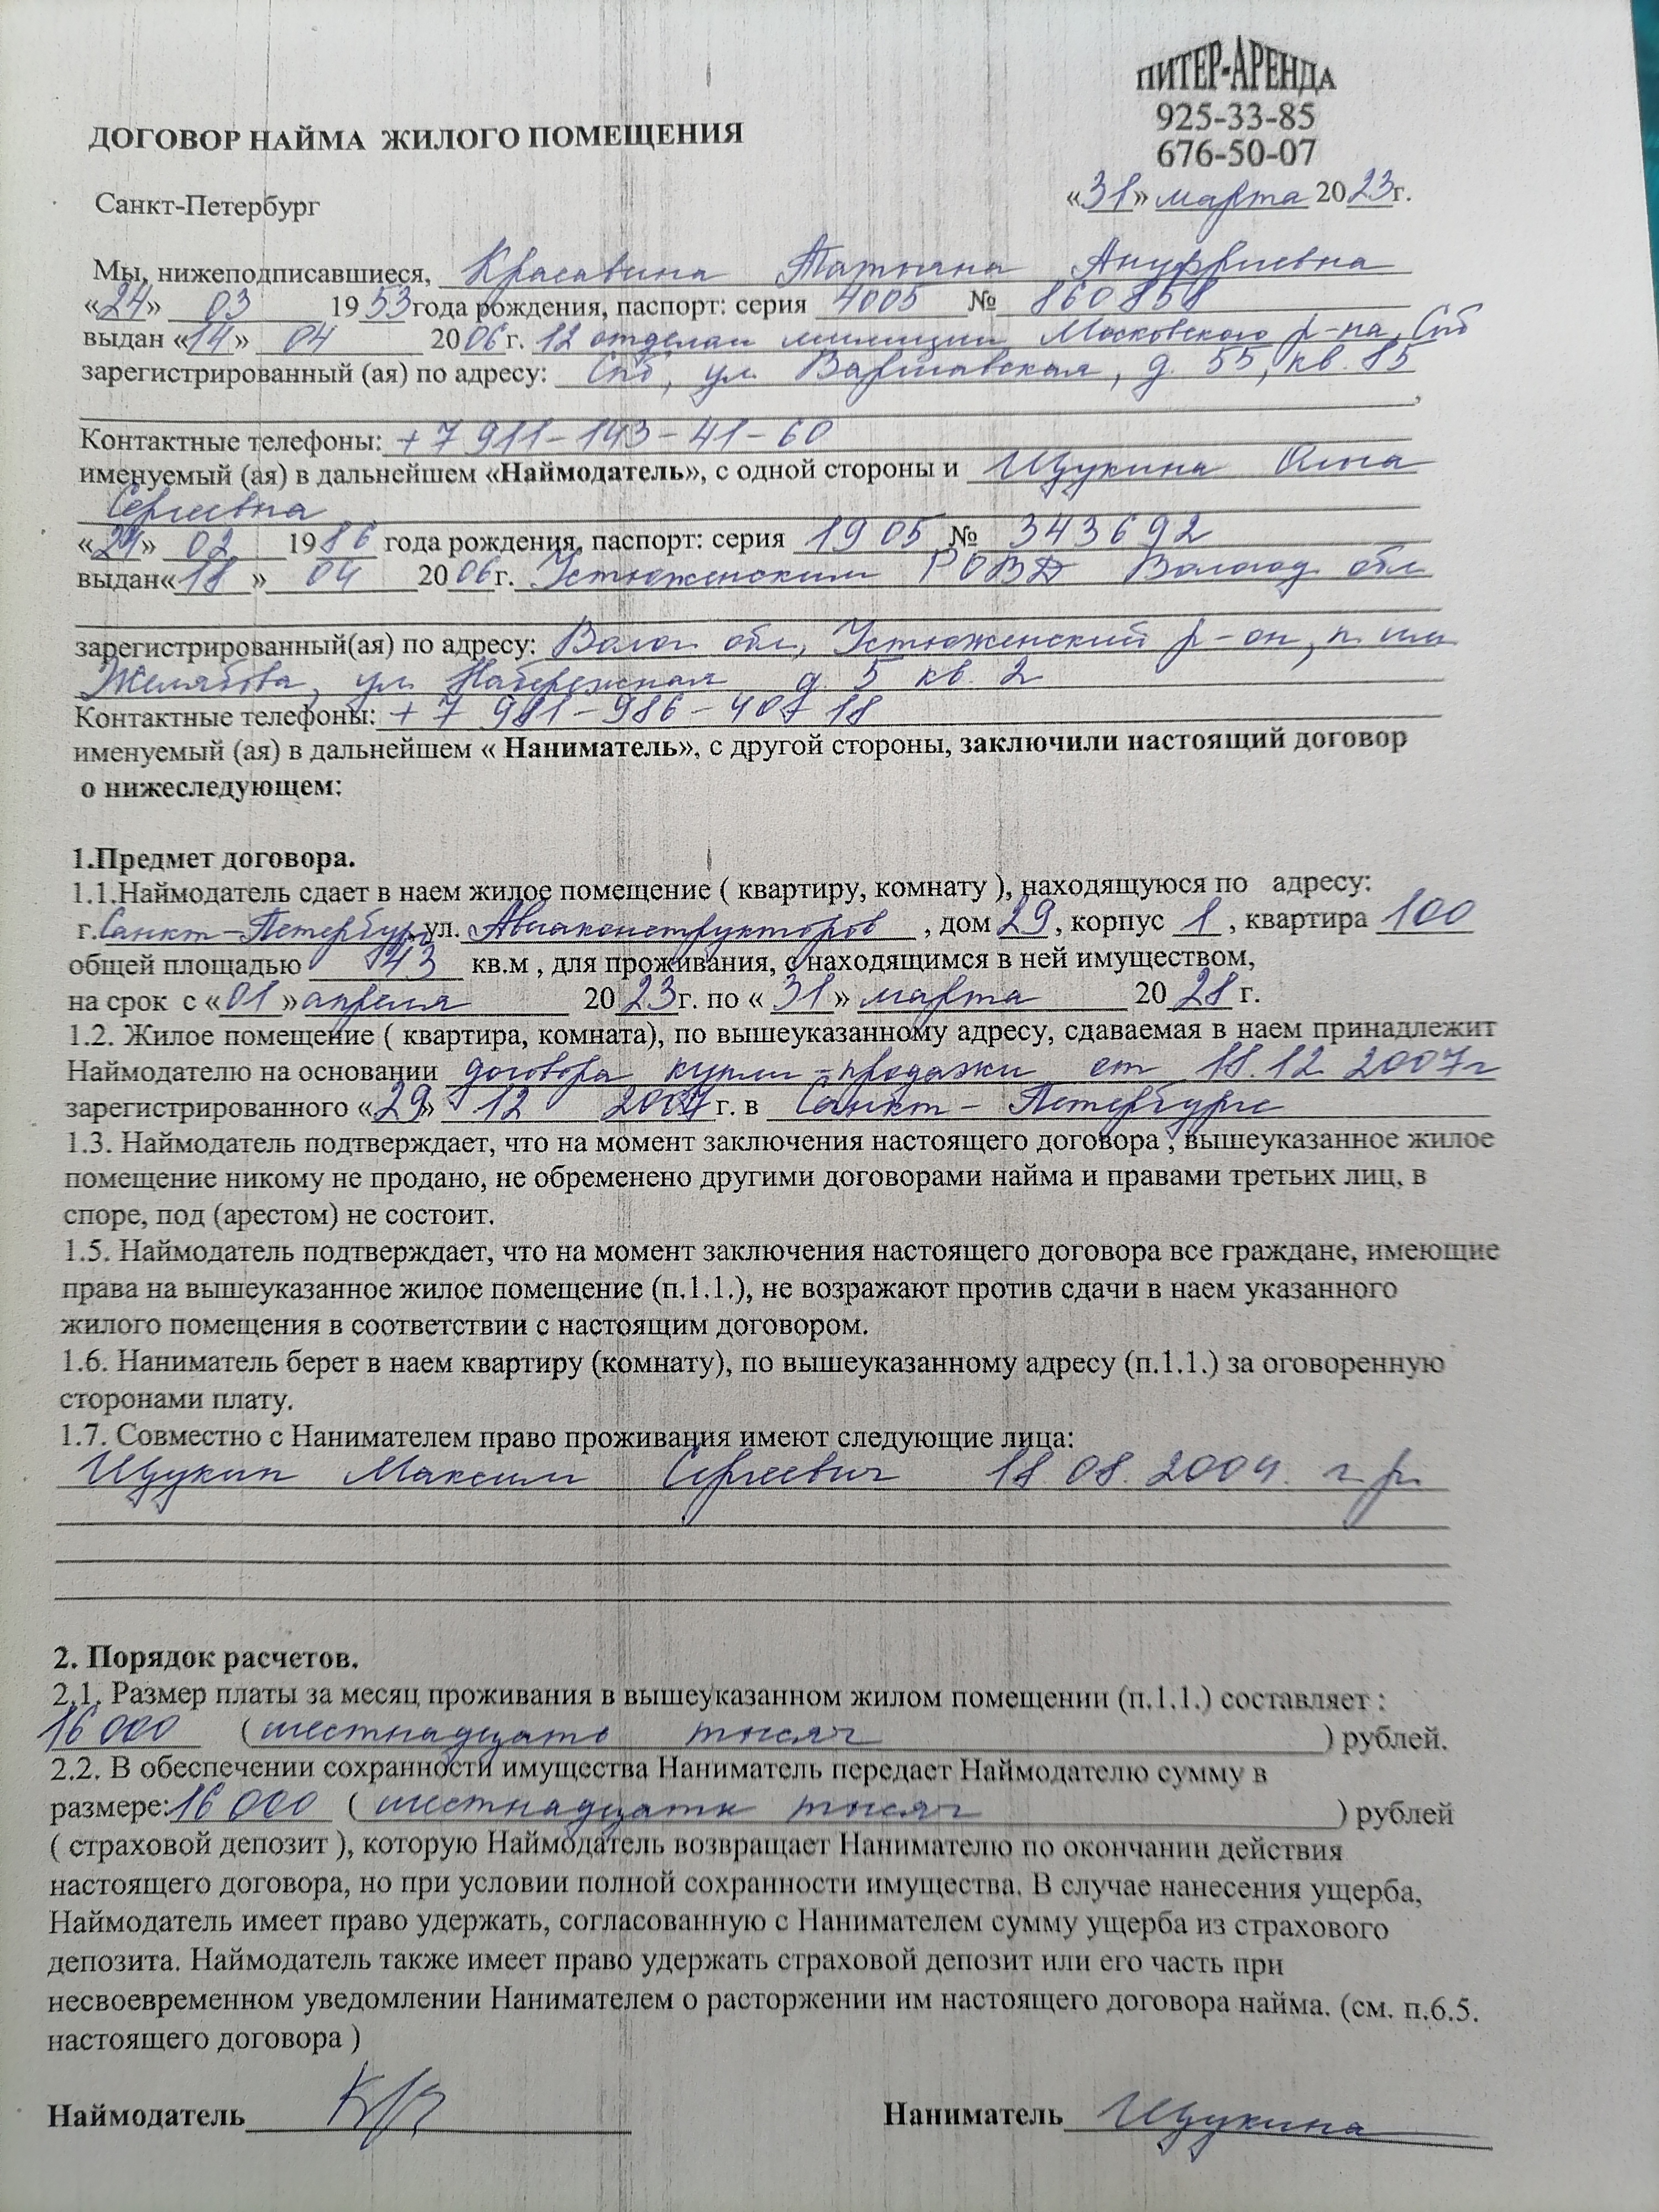 ПИТЕР-АРЕНДА
925-33-85
676-50-07
ДОГОВОР НАЙМА ЖИЛОГО ПОМЕЩЕНИЯ
Санкт-Петербург «31» марта 2023г.
Мы, нижеподписавшиеся, Красавина Татьяна Ануфриевна
«24» 03 1953 года рождения, паспорт: серия 4005 № 860858
выдан «14» 04 2006г. 12 отделом милиции Московского р-на, Спб
зарегистрированный (ая) по адресу: Спб, ул. Варшавская, д. 55, кв. 85
,
Контактные телефоны: +7 911-143-41-60
именуемый (ая) в дальнейшем «Наймодатель», с одной стороны и Щукина Анна
Сергеевна
«24» 02 1986 года рождения, паспорт: серия 1905 № 343692
выдан«18 » 04 2006г. Устюженским РОВД Вологод. обл
зарегистрированный(ая) по адресу: Волог. обл, Устюженский р-он, п. им
Желябова, ул. Набережная д. 5 кв. 2
Контактные телефоны: +7 981-986-407 18
именуемый (ая) в дальнейшем « Наниматель», с другой стороны, заключили настоящий договор
о нижеследующем:
1.Предмет договора.
1.1.Наймодатель сдает в наем жилое помещение ( квартиру, комнату ), находящуюся по адресу:
г.Санкт-Петербург, ул. Авиаконструкторов , дом 29, корпус 1 , квартира 100
общей площадью 43 кв.м , для проживания, с находящимся в ней имуществом,
на срок с «01 »апреля 2023г. по « 31» марта 2028 г.
1.2. Жилое помещение ( квартира, комната), по вышеуказанному адресу, сдаваемая в наем принадлежит
Наймодателю на основании договора купли-продажи от 18.12.2007г
зарегистрированного «29» 12 2007 г. в Санкт-Петербурге
1.3. Наймодатель подтверждает, что на момент заключения настоящего договора , вышеуказанное жилое
помещение никому не продано, не обременено другими договорами найма и правами третьих лиц, в
споре, под (арестом) не состоит.
1.5. Наймодатель подтверждает, что на момент заключения настоящего договора все граждане, имеющие
права на вышеуказанное жилое помещение (п.1.1.), не возражают против сдачи в наем указанного
жилого помещения в соответствии с настоящим договором.
1.6. Наниматель берет в наем квартиру (комнату), по вышеуказанному адресу (п.1.1.) за оговоренную
сторонами плату.
1.7. Совместно с Нанимателем право проживания имеют следующие лица:
Щукин Максим Сергеевич 18.08.2004. г.р.
2. Порядок расчетов.
2.1. Размер платы за месяц проживания в вышеуказанном жилом помещении (п.1.1.) составляет :
16 000 (шестнадцать тысяч ) рублей.
2.2. В обеспечении сохранности имущества Наниматель передает Наймодателю сумму в
размере:16 000 ( шестнадцать тысяч ) рублей
( страховой депозит ), которую Наймодатель возвращает Нанимателю по окончании действия
настоящего договора, но при условии полной сохранности имущества. В случае нанесения ущерба,
Наймодатель имеет право удержать, согласованную с Нанимателем сумму ущерба из страхового
депозита. Наймодатель также имеет право удержать страховой депозит или его часть при
несвоевременном уведомлении Нанимателем о расторжении им настоящего договора найма. (см. п.6.5.
настоящего договора )
Наймодатель Наниматель Щукина